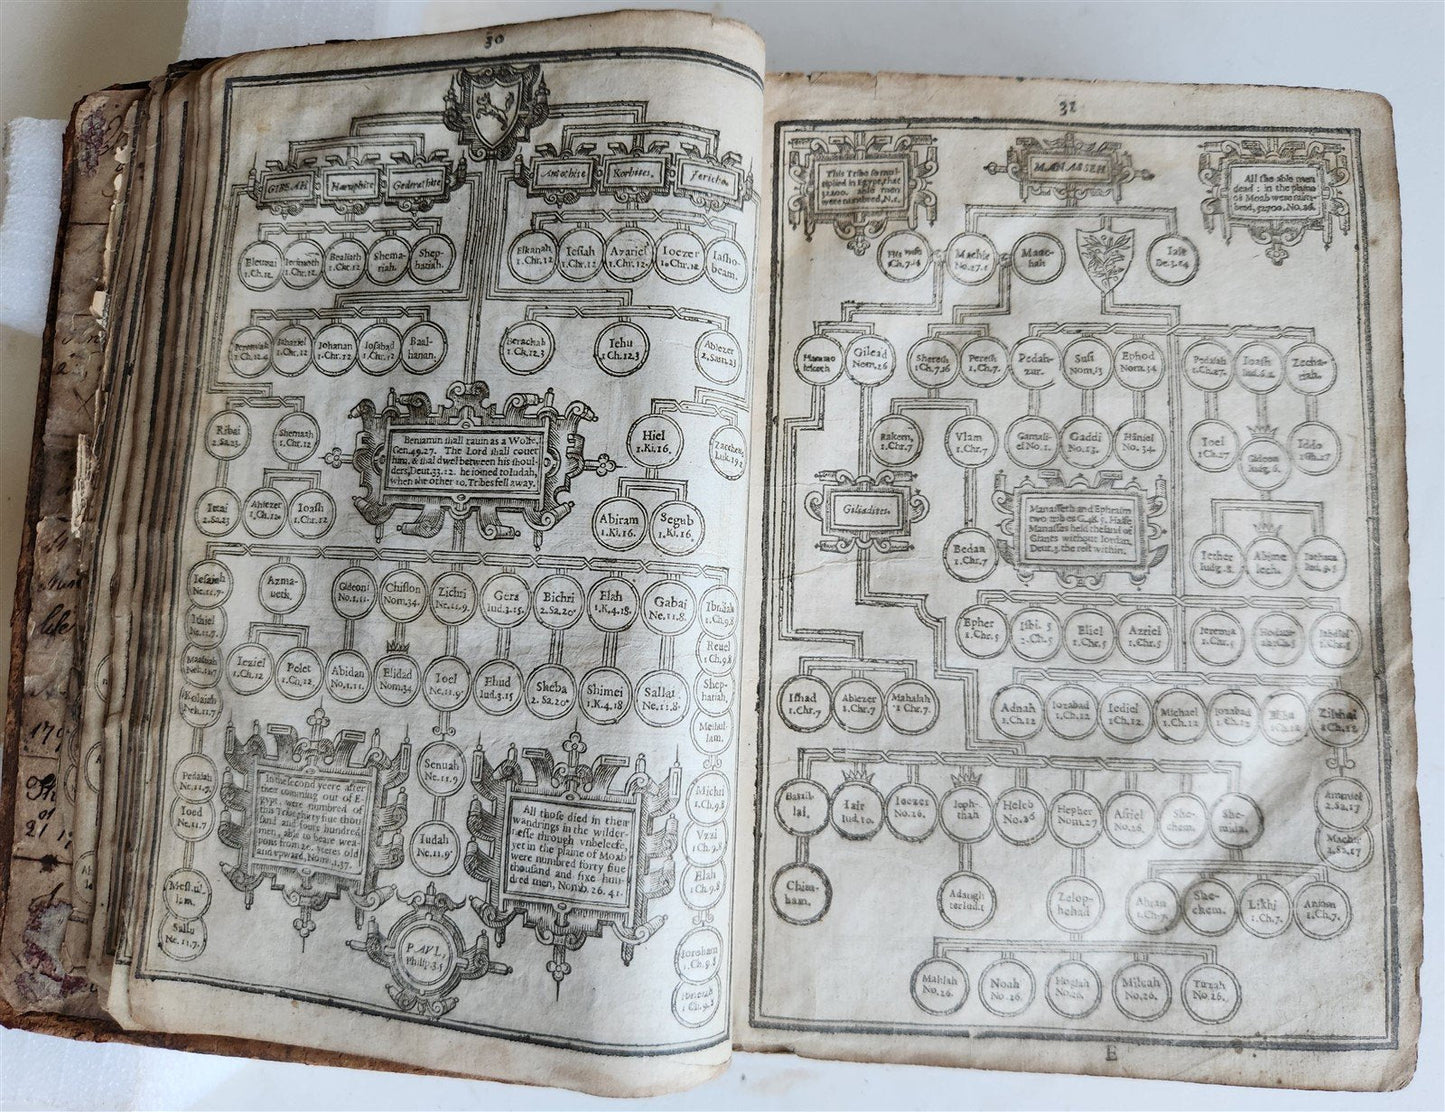 30
GIBEAH.
Haruphite
Gederathite
Antothite
Korhites.
Jericho.
Eleuzai
1.Ch.12.
Ierimoth
1.Chr.12.
Bealiath
1.Chr.12
Shema-
riah.
Shep-
hatiah.
Elkanah
1.Chr.12
Iesiah
1.Chr.12
Azariel
1.Chr.12.
Ioezer
1.Chr.12.
Iasho-
beam.
Ieremiah
1.Chr.12.
Iahaziel
1.Chr.12
Iohanan
1.Chr.12
Iosabad
1.Chr.12
Baal-
hanan.
Berachah
1.Ch.12.3
Iehu
1.Ch.12.3
Abiezer
2.Sam.23
Ribai
2.Sa.23.
Shemaah
1.Chr.12.
Beniamin shall rauin as a Wolfe,
Gen.49.27. The Lord shall couer
him. & shal dwel between his shoul-
ders, Deut.33.12. he ioined to Iudah,
when the other 10. Tribes fell away.
Hiel
1.Ki.16.
Zaccheus
Luk.19.2
Ittai
2.Sa.23
Ahiezer
1.Ch.12.
Ioash
1.Chr.12.
Abiram
1.Ki.16.
Segub
1.Ki.16.
Iesaiah
Ne.11.7.
Azma-
ueth.
Gideoni
No.1.11.
Chislon
Nom.34.
Zichri
Ne.11.9.
Gera
Iud.3.15.
Bichri
2.Sa.20.
Elah
1.K.4.18.
Gabai
Ne.11.8.
Ibniiah
1.Ch.9.8
Ithiel
Ne.11.7.
Reuel
1.Ch.9.8
Maasiah
Ne.11.7.
Ieziel
1.Ch.12
Pelet
1.Ch.12.
Abidan
No.1.11.
Elidad
Nom.34
Ioel
Ne.11.9.
Ehud
Iud.3.15
Sheba
2.Sa.20.
Shimei
1.K.4.18
Sallai
Ne.11.8.
Shep-
hatiah.
Kolaiah
Neh.11.7.
Meshul-
lam.
Pedaiah
Ne.11.7.
In the second yeere after
their comming out of E-
gypt, were numbred of
this Tribe thirty fiue thou-
sand and foure hundred
men, able to beare wea-
pons from 20. yeeres old
and vpward, Nom.1.37.
Senuah
Ne.11.9
All those died in their
wandrings in the wilder-
nesse through vnbeleefe,
yet in the plaine of Moab
were numbred forty fiue
thousand and sixe hun-
dred men, Nomb. 26. 41.
Michri
1.Ch.9.8
Ioed
Ne.11.7
Iudah
Ne.11.9
Vzzi
1.Ch.9.8
Elah
1.Ch.9.8
Meshul-
lam.
Sallu
Ne.11.7.
PAVL,
Philip.3.5
Ieroham
1.Ch.9.8
1.Ch.9.8
31
This Tribe so mul-
tiplied in Egypt, that
32200. able men
were numbred, N.1.
MANASSEH
All the able men
dead: in the plaine
of Moab were num-
bred, 52700. No.26.
1.Ch.7.14
Machir
No.27.1
Maac-
hah
Iair
De.3.14
Hammo
leketh
Gilead
Nom.26
Sheresh
1.Ch.7.16
Peresh
1.Ch.7.
Pedah-
zur.
Susi
Nom.13
Ephod
Nom.34
Pedaiah
1.Ch.27.
Ioash
Iud.6.
Zecha-
riah.
Rakem,
1.Chr.7
Vlam
1.Chr.7.
Gamali-
el No.1.
Gaddi
No.13.
Haniel
No.34.
Ioel
1.Ch.27
Gideon
Iudg.6.
Iddo
1.Ch.27
Giliadites.
Manasseth and Ephraim
two tribes G.48.5. Halfe
Manasses held the land of
Giants without Iordan,
Deut.3. the rest within.
Bedan
1.Ch.7
Iether
Iudg.8.
Abime
lech.
Iotham
Iud.9.5
Epher
1.Chr.5
Ishi. 5
2.Ch.5
Eliel
1.Chr.5
Azriel
1.Chr.5
Ieremia
1.Chr.5
Hodaui
1.Chr.5.
Iahdiel
1.Chr.5
Ishad
1.Chr.7
Abiezer
1.Chr.7
Mahalah
1.Chr.7.
Adnah
1.Ch.12
Iozabad
1.Ch.12
Iediel
1.Ch.12.
Michael
1.Ch.12
Iozabad
1.Ch.12
1.Ch.12
Zilthai
1.Ch.12
Barzil-
lai.
Iair
Iud.10.
Ieezer
No.26.
Ieph-
thah
Heleb
No.26
Hepher
Nom.27
Asriel
No.26.
She-
chem.
She-
mida.
Ammiel
2.Sa.17
Machir
2.Sa.17
Chim-
ham.
A daugh
ter Iud.11
Zeloph-
hehad
Ahian
1.Ch.7.
She-
chem.
Likhi
1.Ch.7.
Aniam
1.Ch.7.
Mahlah
No.26.
Noah
No.26.
Hoglah
No.26.
Milcah
No.26.
Tirzah
No.26.
E